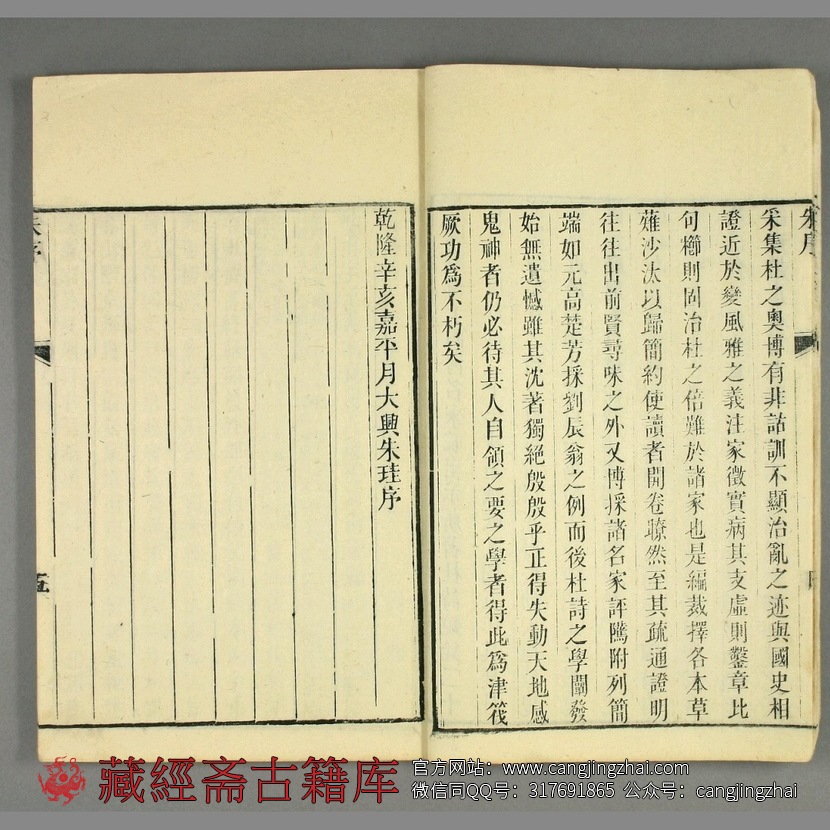 朱序
采集杜之奧博有非詁訓不顯治亂之迹與國史相
證近於變風雅之義注家徵實病其支虛則鑿章比
句櫛則固治杜之倍難於諸家也是編裁擇各本草
薙沙汰以歸簡約使讀者開卷瞭然至其疏通證明
往往出前賢尋味之外又博採諸名家評隲附列簡
端如元高楚芳採劉辰翁之例而後杜詩之學闡發
始無遺憾雖其沈著獨絕殷殷乎正得失動天地感
鬼神者仍必待其人自領之要之學者得此為津筏
厥功為不朽矣
乾隆辛亥嘉平月大興朱珪序
五
藏經斋古籍库
官方网站：www.cangjingzhai.com
微信同QQ号：317691865 公众号：cangjingzhai